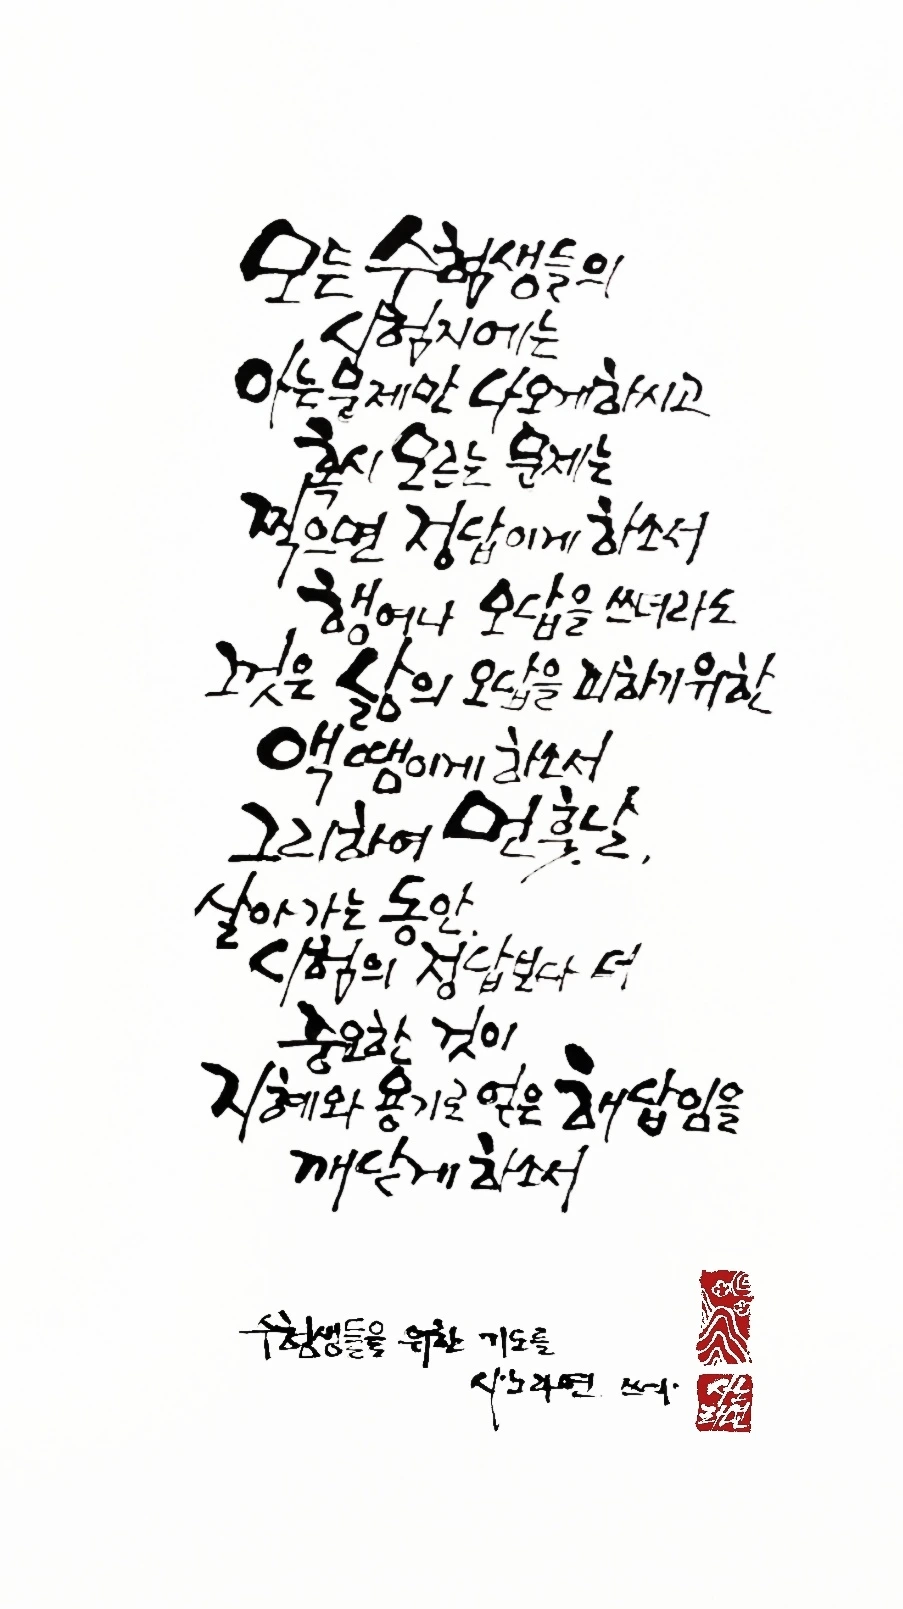 모든 수험생들의
시험지에는
아는문제만 나오게하시고
혹시 모르는 문제는
찍으면 정답이게 하소서
행여나 오답을 쓰더라도
그것은 삶의 오답을 피하기위한
액땜이게 하소서
그리하여 먼훗날,
살아가는 동안,
시험의 정답보다 더
중요한 것이
지혜와 용기로 얻은 해답임을
깨닫게 하소서
수험생들을 위한 기도를
쓰다.